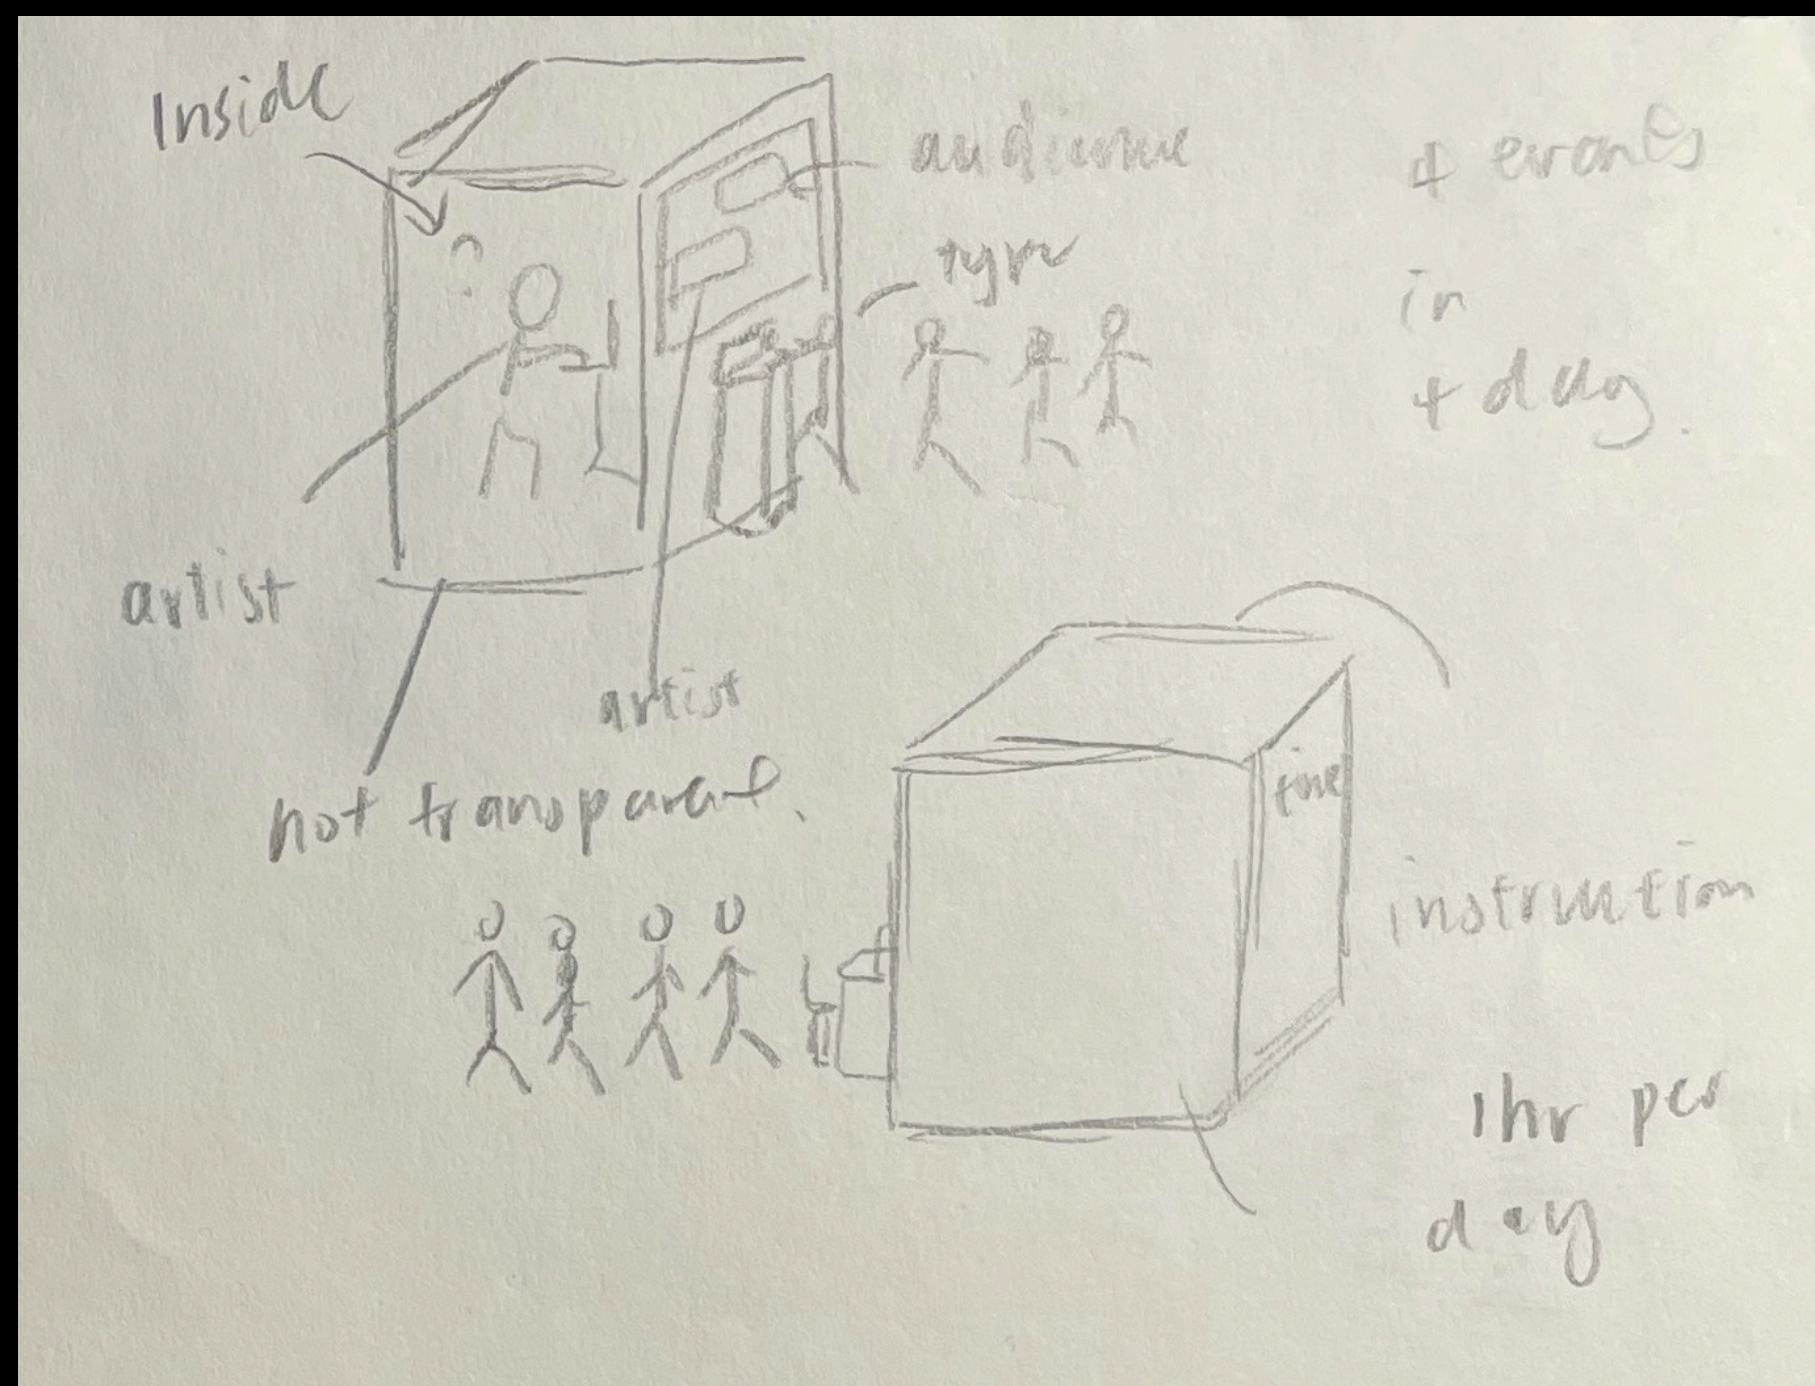 Inside
audience
type
4 events
in
4 day.
artist
artist
not transparent.
time
instruction
1hr per
day